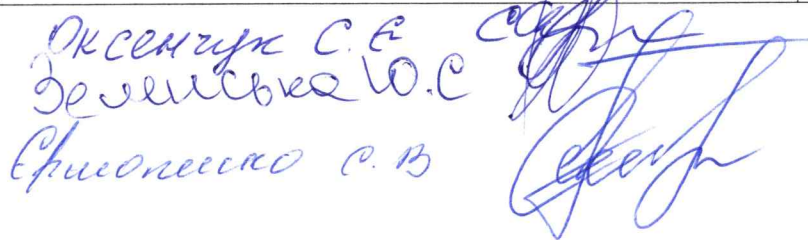 Оксенчук С. Є
Зелінська Ю.С
Єрмоленко С. В